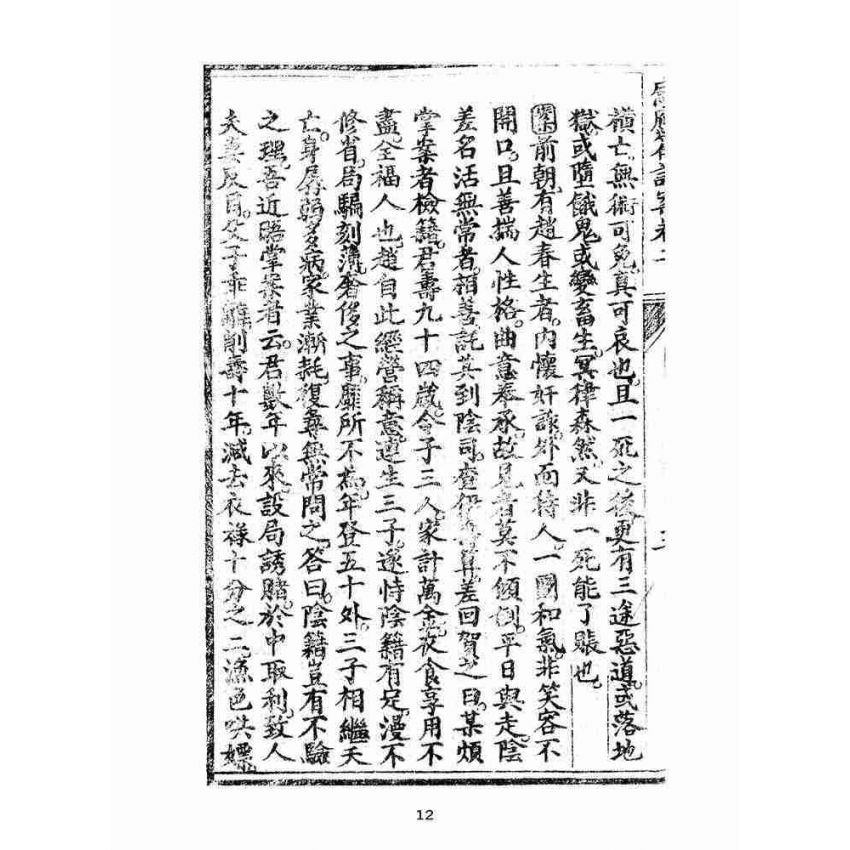 殞亡無術可免真可哀也且一死之後更有三途惡道或落地
獄或墮餓鬼或變畜生冥律森然又非一死能了賬也
案前朝有趙春生者內懷奸謀外面待人一團和氣非笑容不
開口且善揣人性格曲意奉承故見者莫不傾倒平日與走陰
差名活無常者相善託其到陰司查伊算差回賀之曰某煩
掌案者檢籍君壽九十四歲令子三人家計萬金衣食享用不
盡全福人也趙自此經營稱意連生三子遂恃陰籍有定漫不
修省局騙刻薄奢侈之事靡所不為年登五十外三子相繼夭
亡身孱弱多病家業漸耗復尋無常問之答曰陰籍豈有不驗
之理吾近晤掌案者云君數年以來設局誘賭於中取利致人
夫妻反目父子乖離削壽十年減去衣祿十分之二漁色哄嫖
12